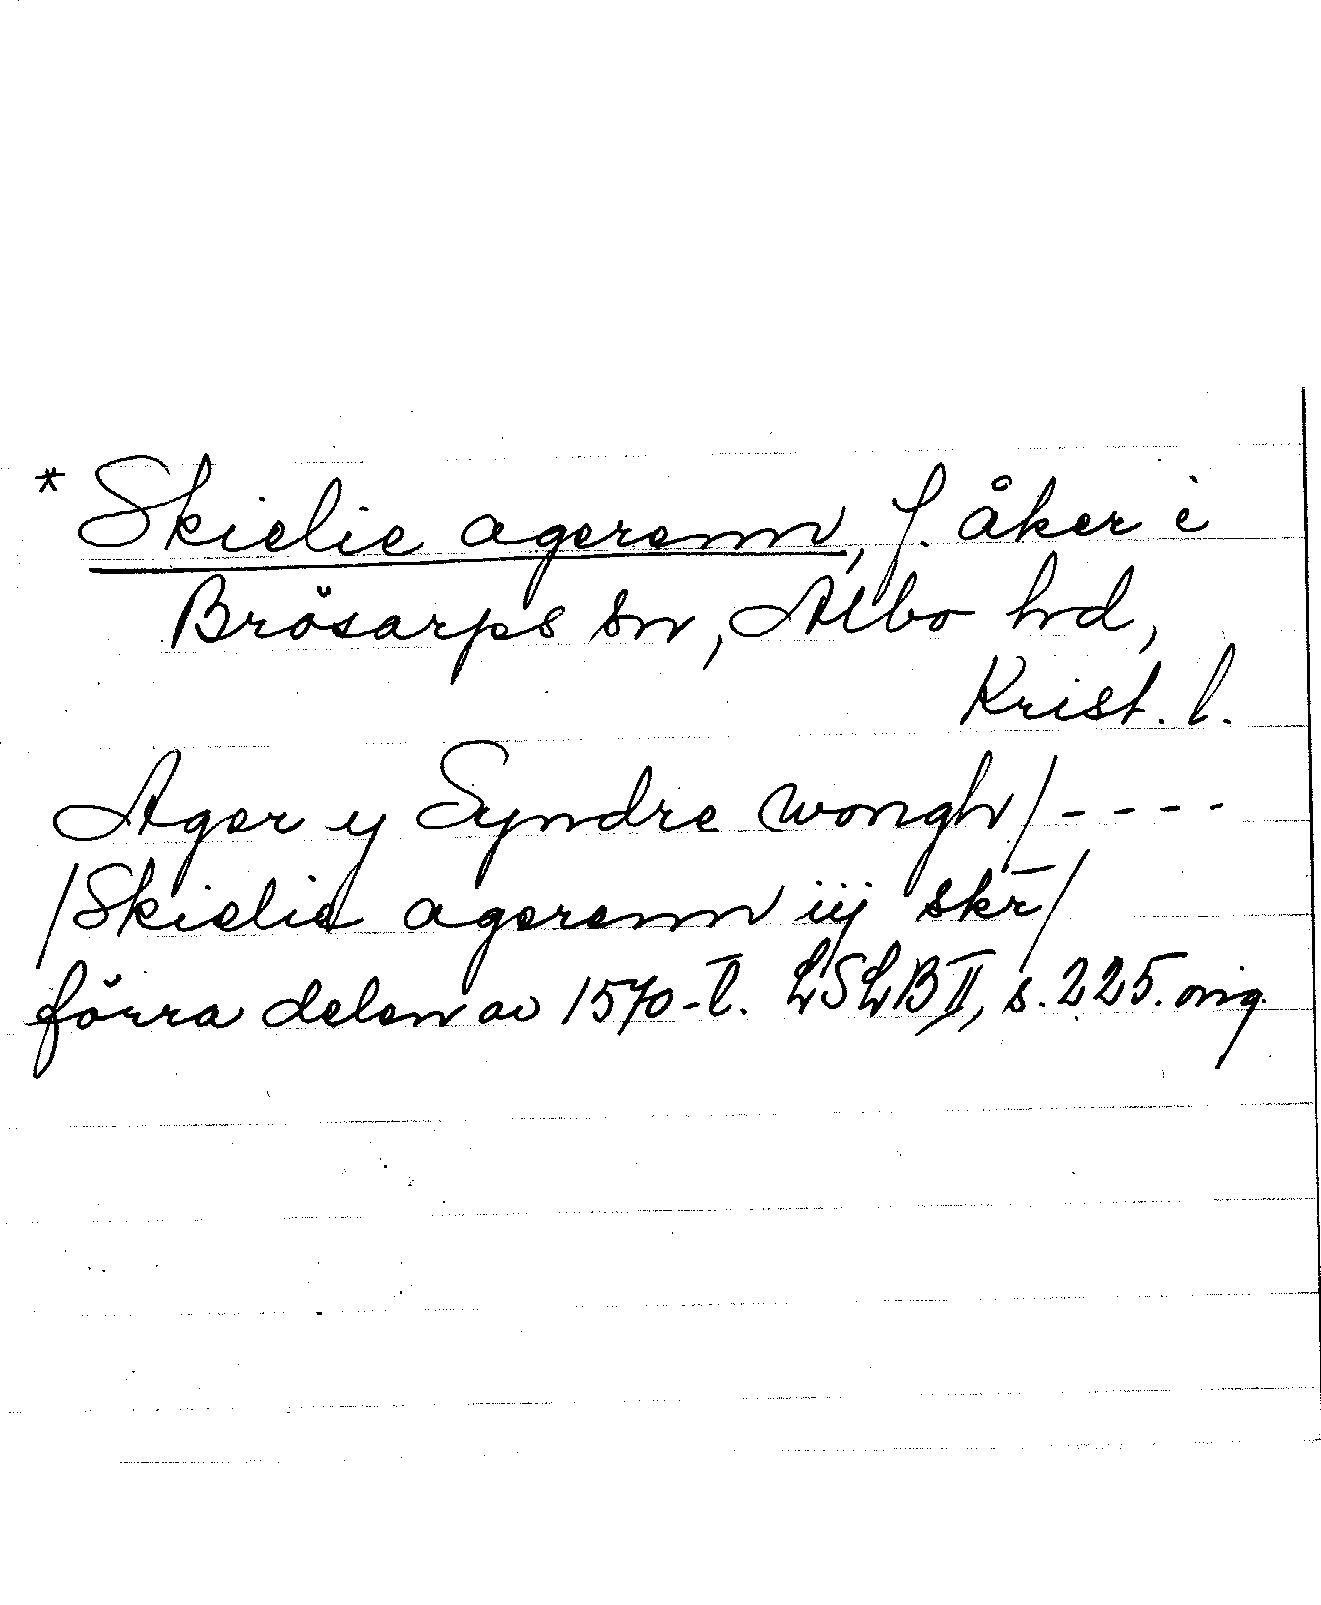 * Skielie agerenn, f. åker i
Brösarps sn, Albo hd,
Krist. l.
Ager y Syndre wongh/----
/Skielie agerenn iij skr̄/
förra delen av 1570-t. LSLB II, s. 225. orig.